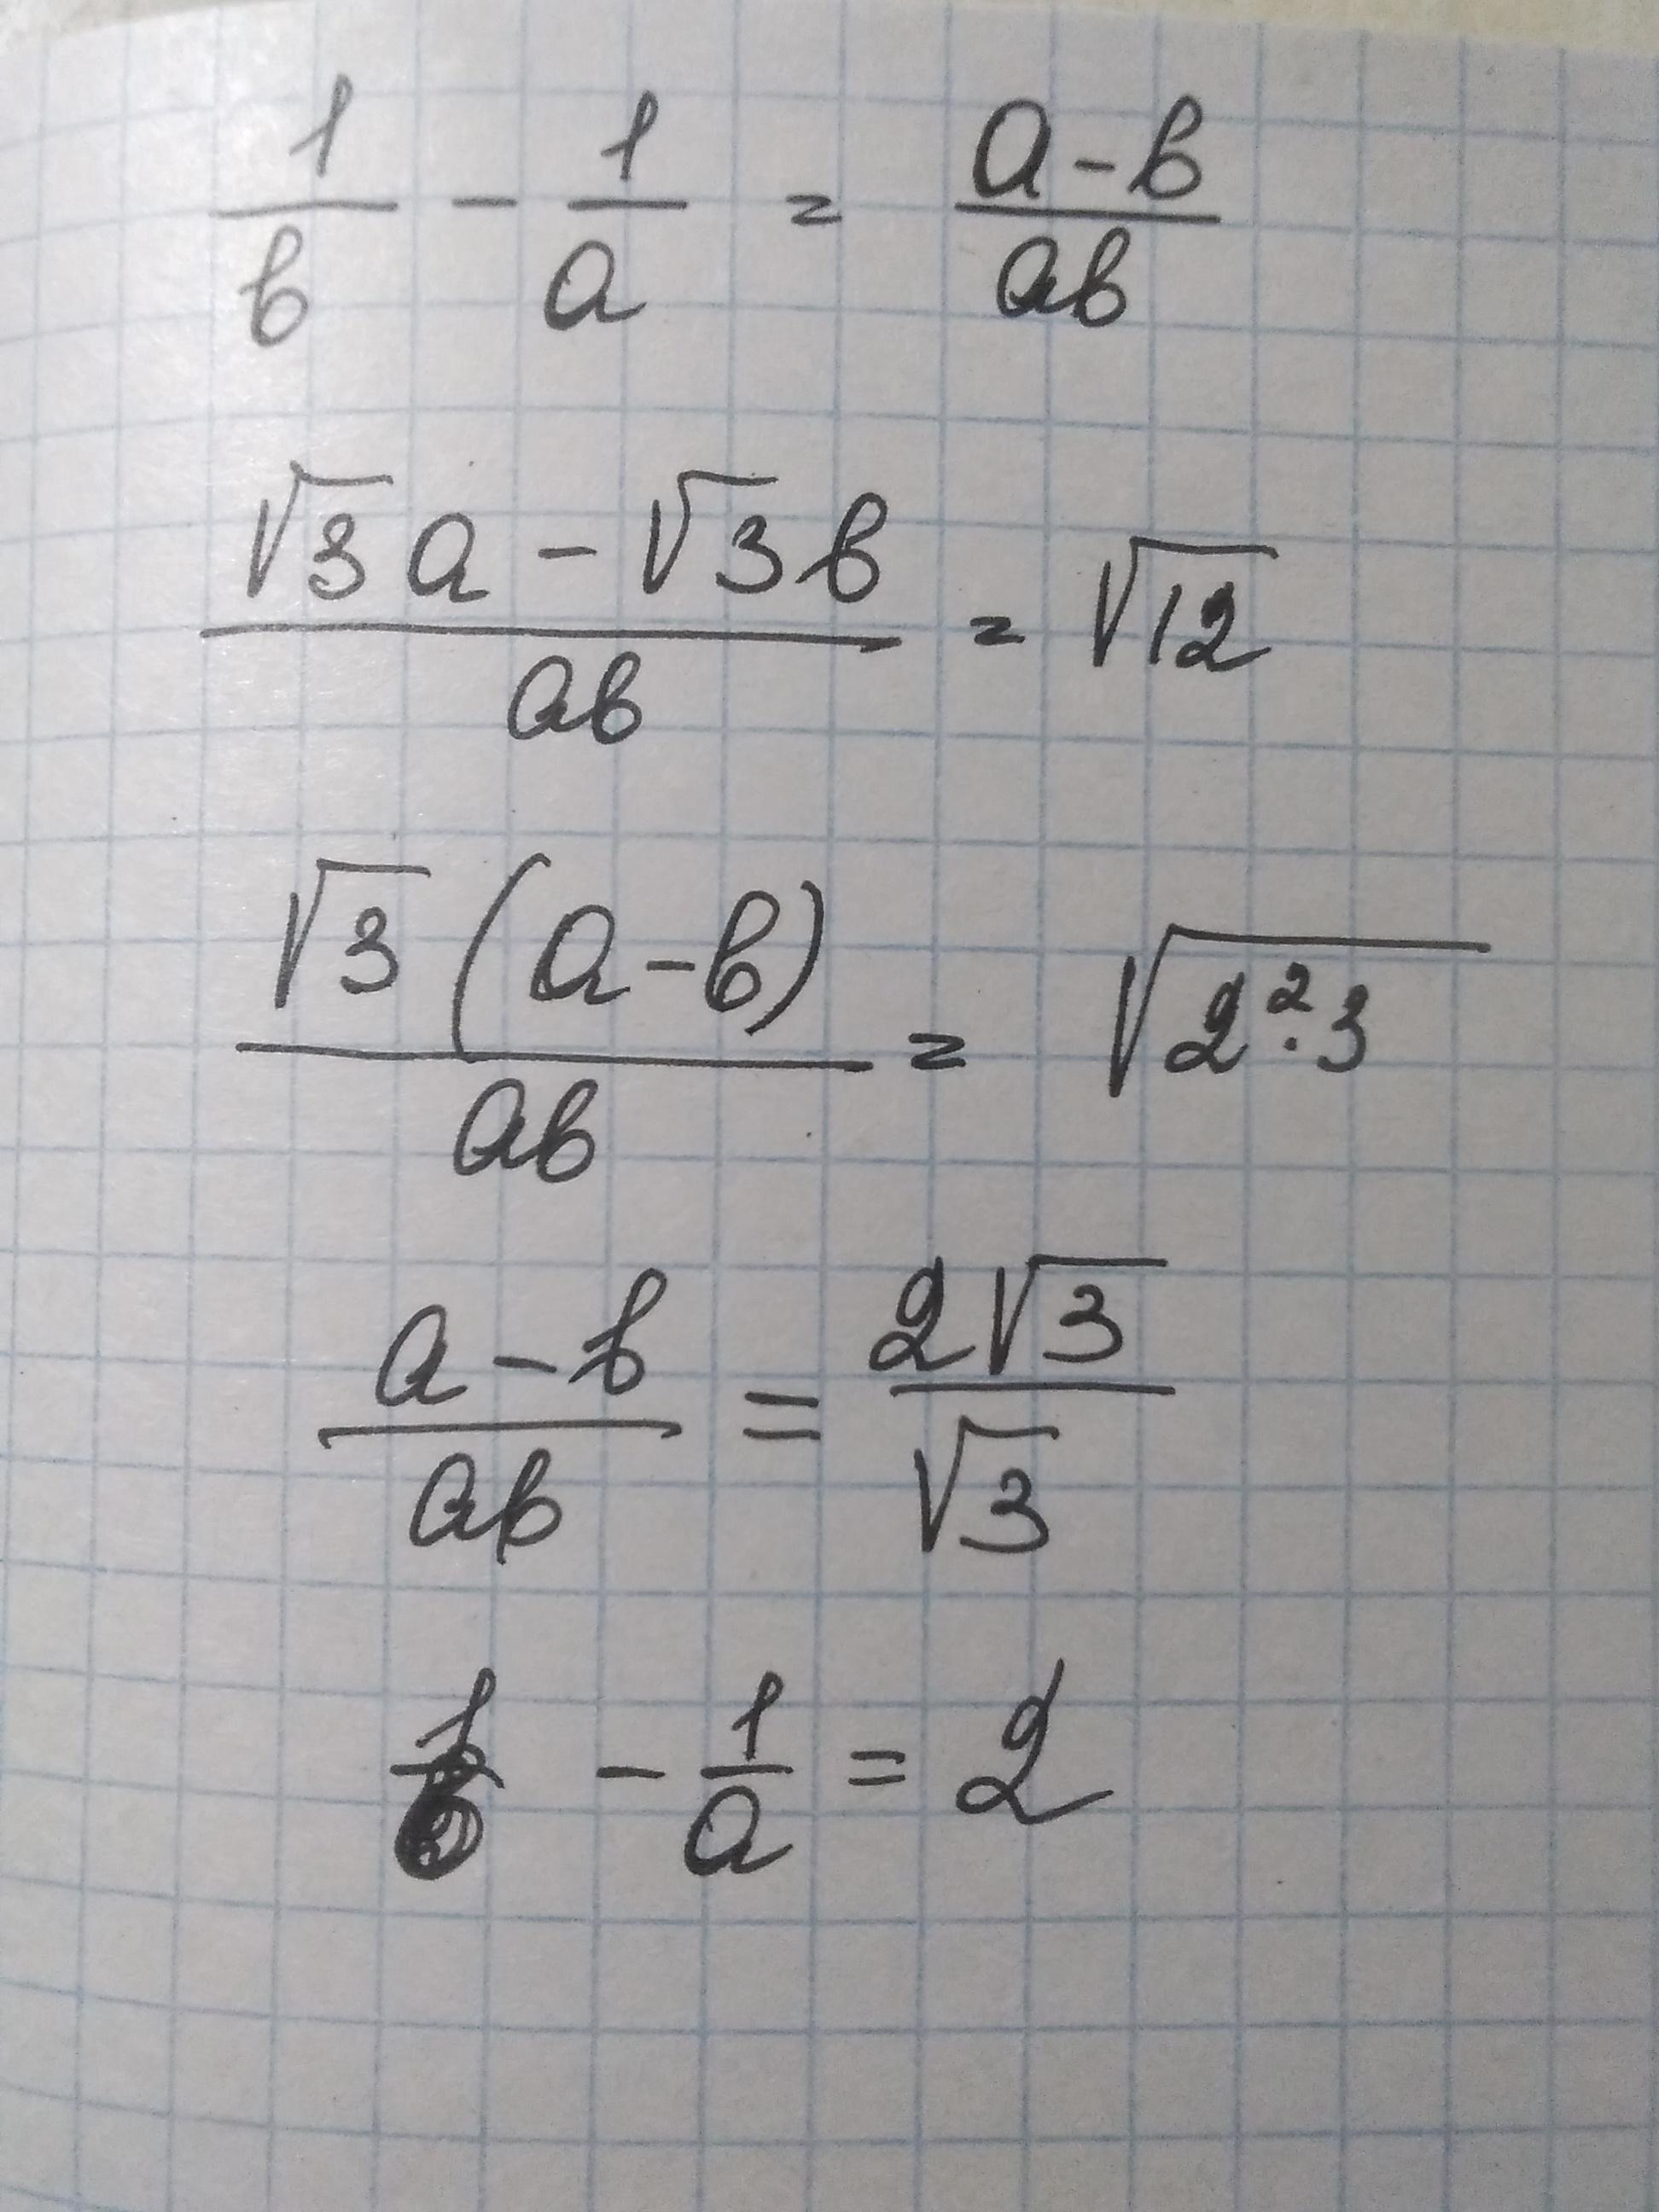 1/b - 1/a = (a-b)/(ab)
(√3a - √3b)/(ab) = √12
(√3(a-b))/(ab) = √(2²·3)
(a-b)/(ab) = (2√3)/(√3)
1/b - 1/a = 2